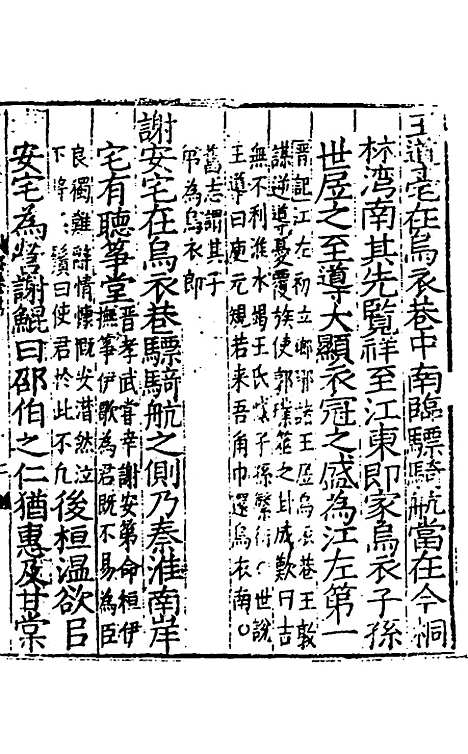 王導宅在烏衣巷中南臨驃騎航當在今桐
林灣南其先覽祥至江東即家烏衣子孫
世居之至導大顯衣冠之盛為江左第一
晉記江左初立瑯琊諸王居烏衣巷王敦
謀逆導憂覆族使郭璞筮之卦成歎曰吉
無不利淮水竭王氏滅子孫繁衍世說
王導曰庾元規若来吾角巾還烏衣南
舊志謂其子
弟為烏衣郎
謝安宅在烏衣巷驃騎航之側乃秦淮南岸
宅有聽箏堂晉孝武嘗幸謝安第命桓伊
撫箏伊歌為君既不易為臣
良獨難辭情慷慨安潸然泣
下捋鬚曰使君於此不凡後桓温欲㠯
安宅為營謝鯤曰邵伯之仁猶惠及甘棠